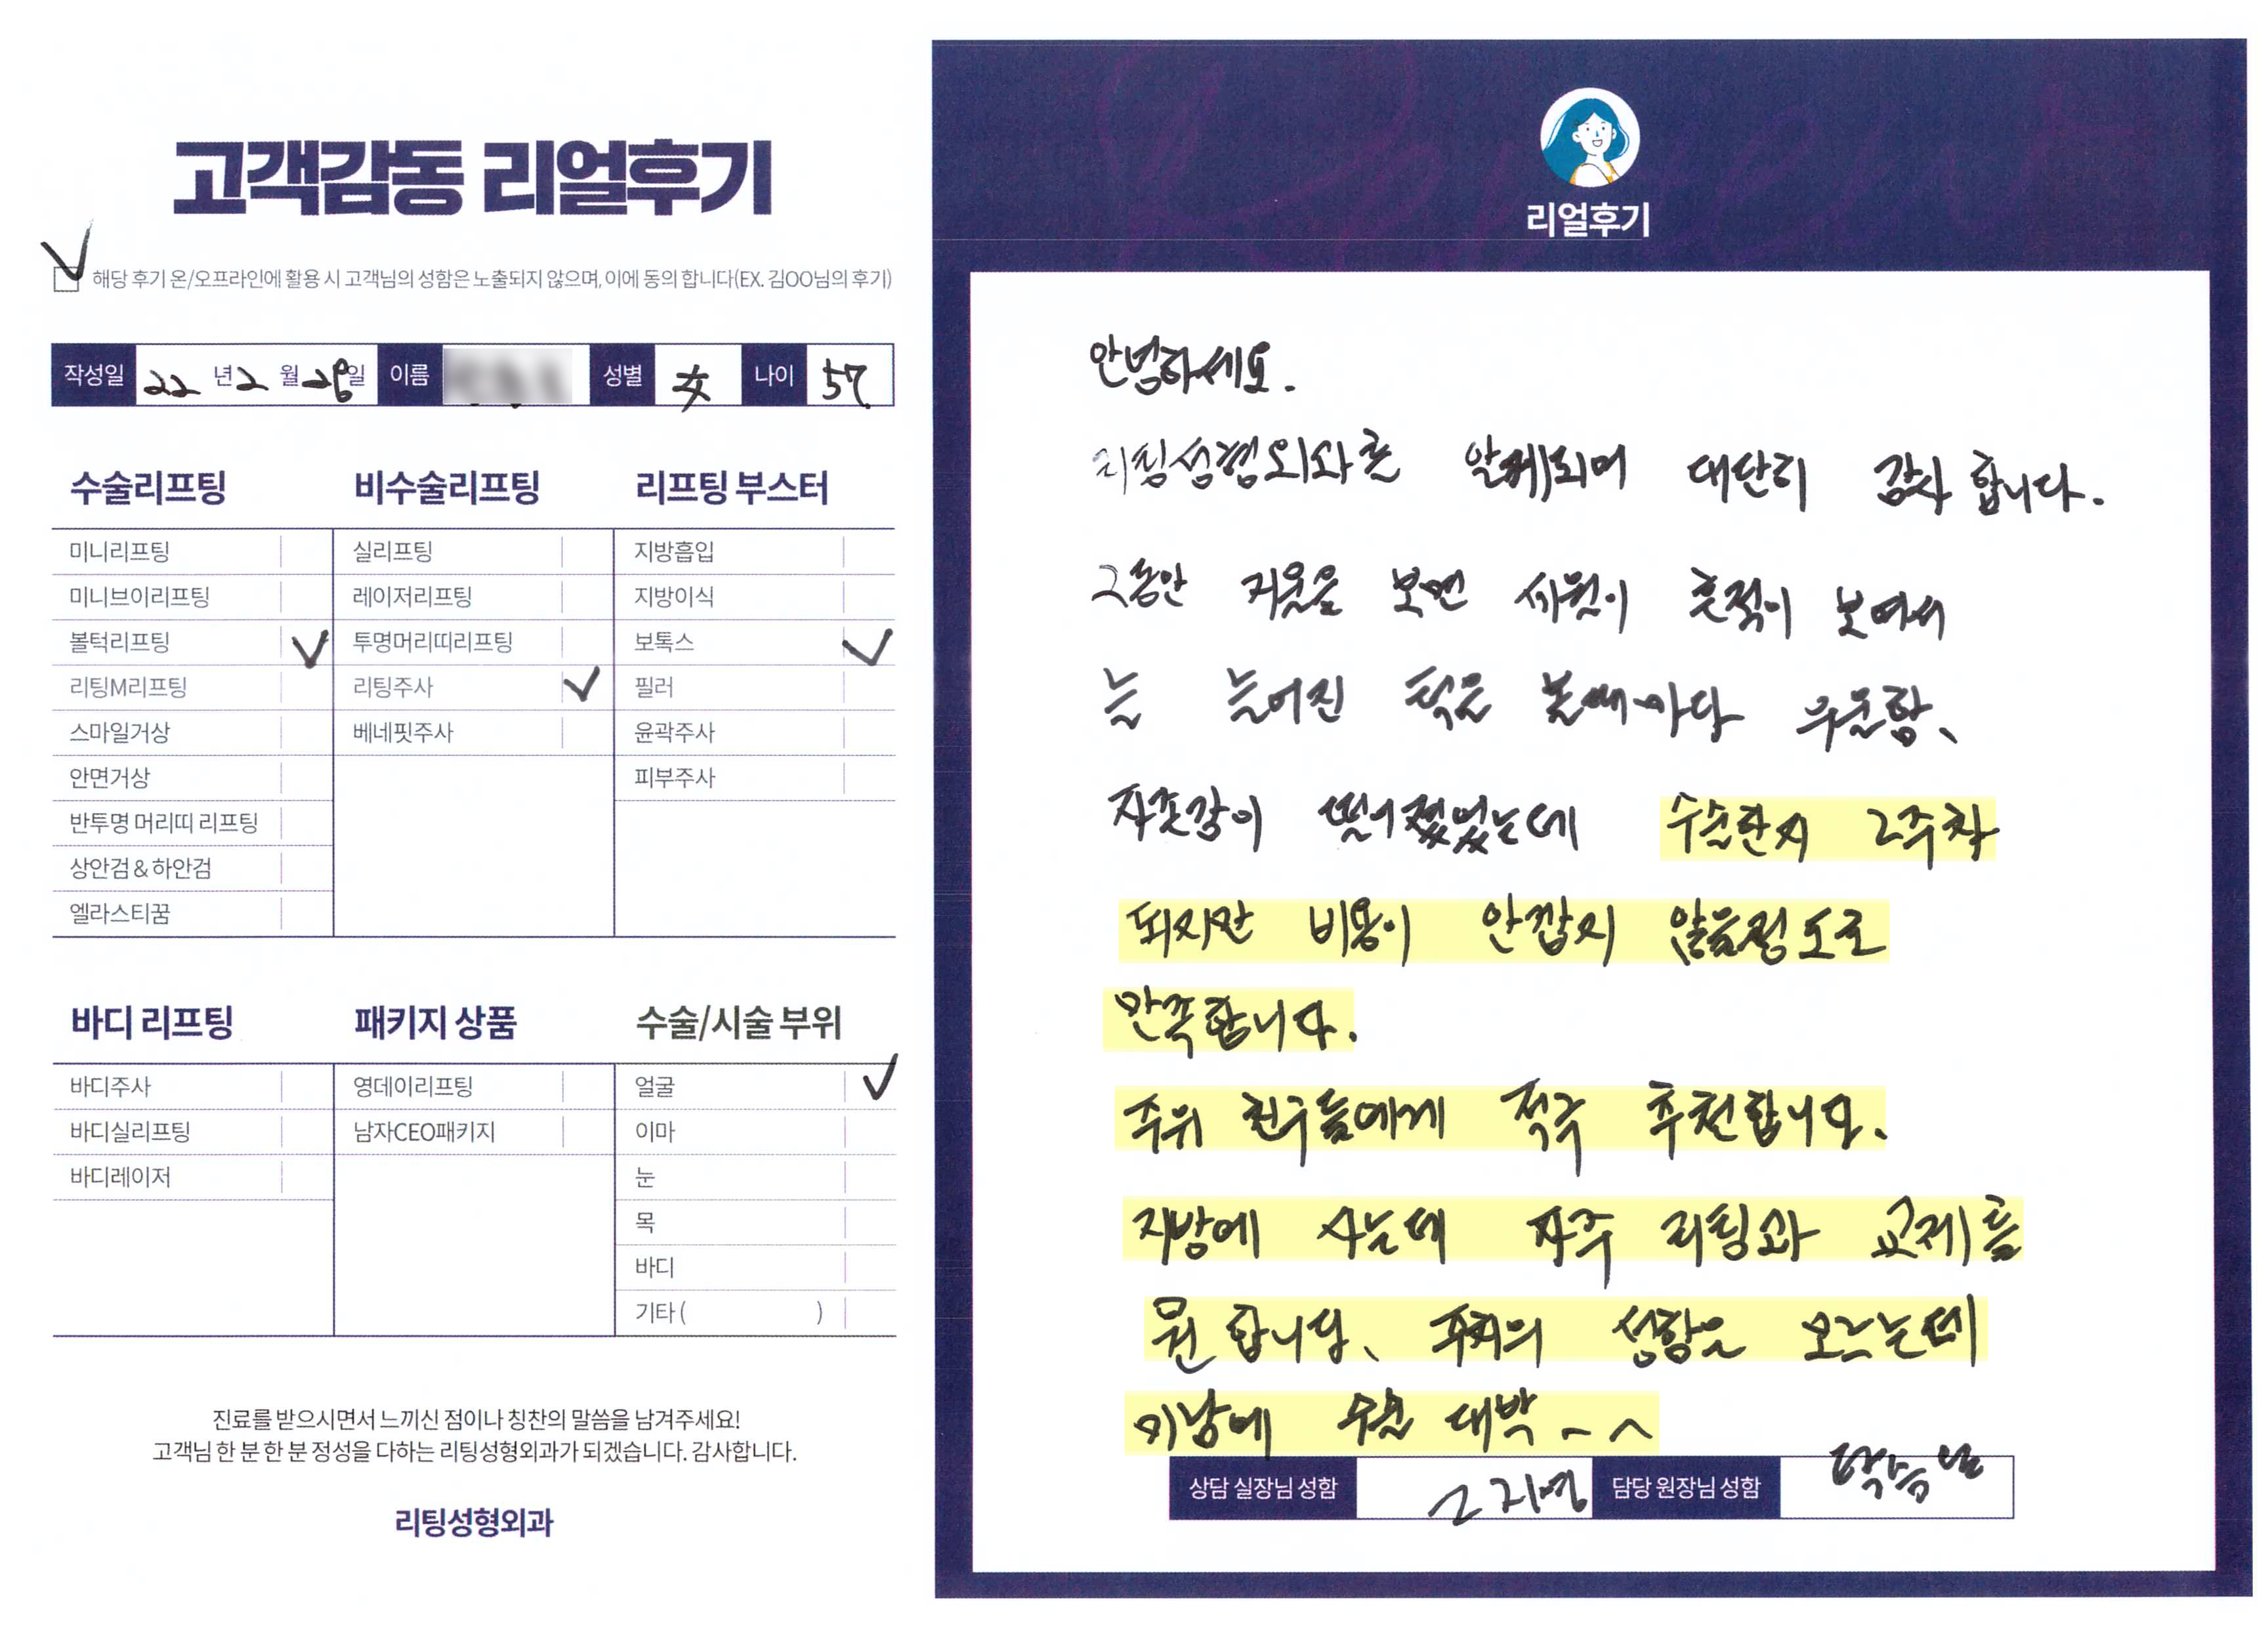 고객감동 리얼후기
해당 후기 온/오프라인에 활용 시 고객님의 성함은 노출되지 않으며, 이에 동의 합니다(EX. 김OO님의 후기)
작성일 22 년 2 월 28 일 이름 성별 女 나이 57
수술리프팅
미니리프팅
미니브이리프팅
볼턱리프팅
리팅M리프팅
스마일거상
안면거상
반투명 머리띠 리프팅
상안검 & 하안검
엘라스티꿈
비수술리프팅
실리프팅
레이저리프팅
투명머리띠리프팅
리팅주사
베네핏주사
리프팅 부스터
지방흡입
지방이식
보톡스
필러
윤곽주사
피부주사
바디 리프팅
바디주사
바디실리프팅
바디레이저
패키지 상품
영데이리프팅
남자CEO패키지
수술/시술 부위
얼굴
이마
눈
목
바디
기타 ( )
진료를 받으시면서 느끼신 점이나 칭찬의 말씀을 남겨주세요!
고객님 한 분 한 분 정성을 다하는 리팅성형외과가 되겠습니다. 감사합니다.
리팅성형외과
리얼후기
안녕하세요.
리팅성형외과를 알게되어 대단히 감사 합니다.
그동안 거울을 보면 세월이 흔적이 보여서
늘 늘어진 턱을 볼때마다 우울함、
자존감이 떨어졌었는데 수술한지 2주차
되지만 비용이 안깝지 않을정도로
만족합니다.
주위 친구들에게 적극 추천합니다.
지방에 사는데 자주 리팅과 교제를
원합니다、 성함을 모르는데
미남에 수술 대박~^
상담 실장님 성함 담당 원장님 성함